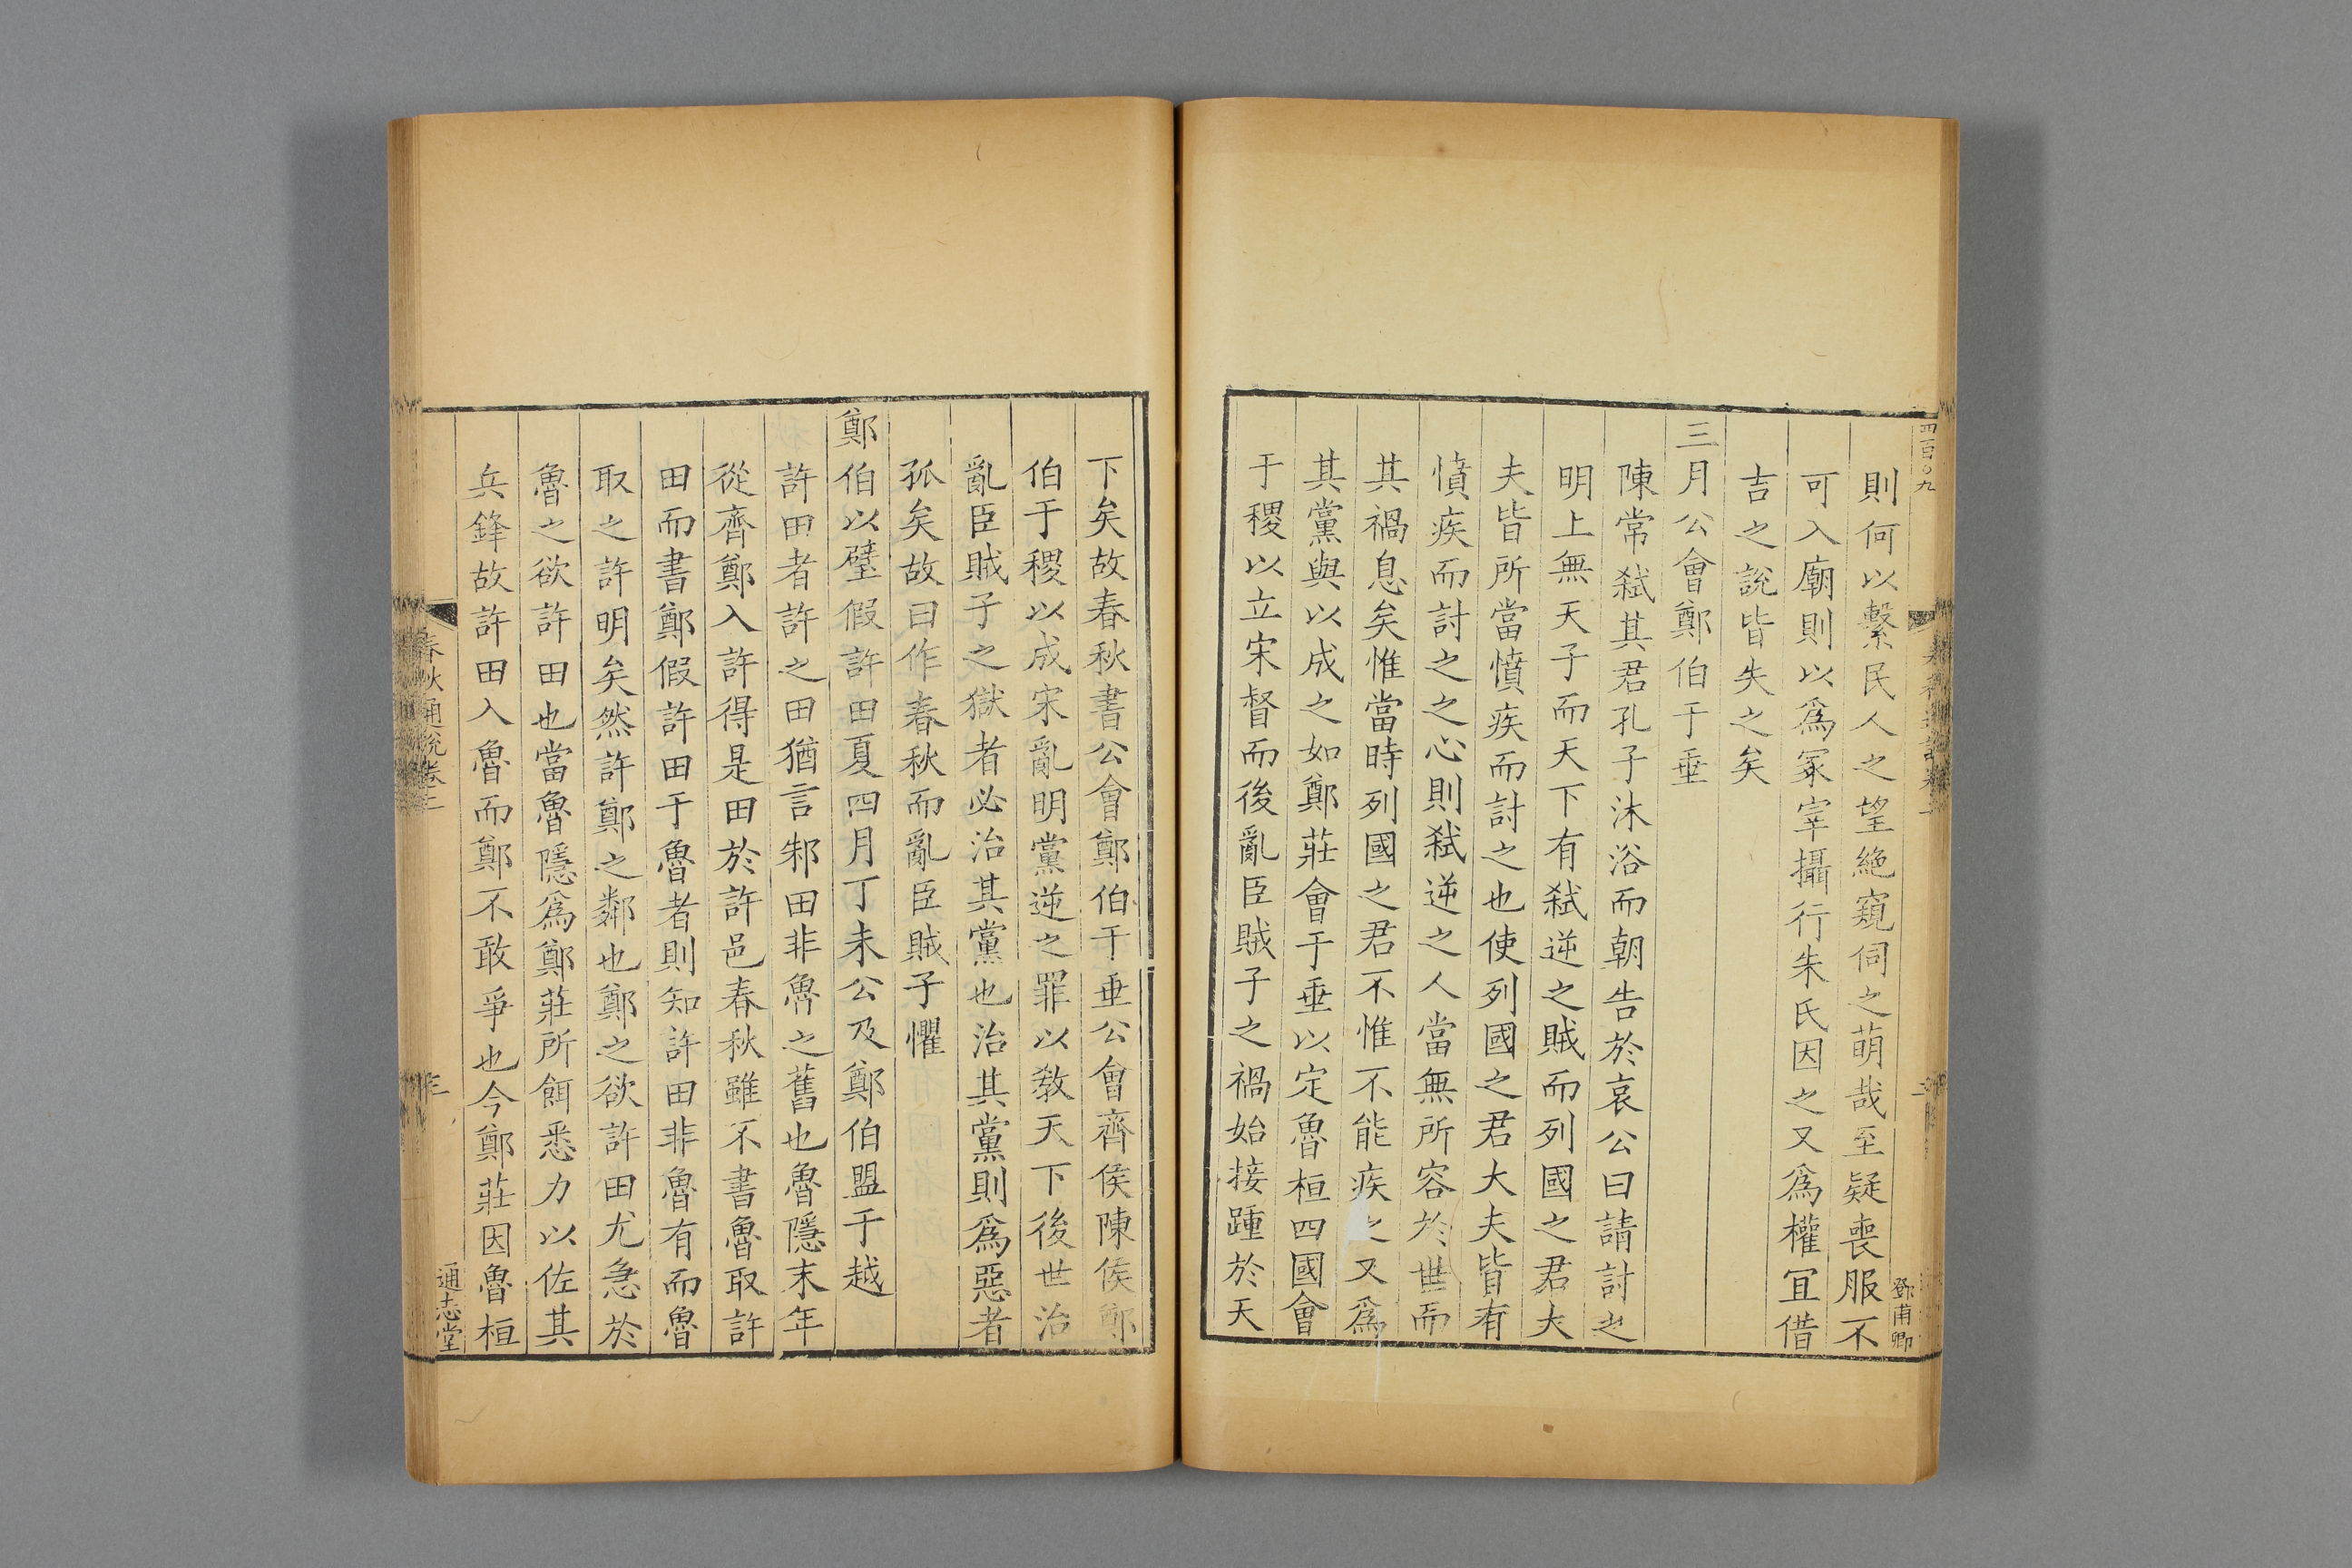 四百〇九
則何以繫民人之望絶窺伺之萌哉至疑喪服不
可入廟則以爲冢宰攝行朱氏因之又爲權宜借
吉之說皆失之矣
三月公會鄭伯于垂
陳常弑其君孔子沐浴而朝告於哀公曰請討之
明上無天子而天下有弑逆之賊而列國之君大
夫皆所當憤疾而討之也使列國之君大夫皆有
憤疾而討之之心則弑逆之人當無所容於世而
其禍息矣惟當時列國之君不惟不能疾之又爲
其黨與以成之如鄭莊會于垂以定魯桓四國會
于稷以立宋督而後亂臣賊子之禍始接踵於天
鄧甫卿
下矣故春秋書公會鄭伯于垂公會齊侯陳侯鄭
伯于稷以成宋亂明黨逆之罪以教天下後世治
亂臣賊子之獄者必治其黨也治其黨則爲惡者
孤矣故曰作春秋而亂臣賊子懼
鄭伯以璧假許田夏四月丁未公及鄭伯盟于越
許田者許之田猶言邾田非魯之舊也魯隱末年
從齊鄭入許得是田於許邑春秋雖不書魯取許
田而書鄭假許田于魯者則知許田非魯有而魯
取之許明矣然許鄭之鄰也鄭之欲許田尤急於
魯之欲許田也當魯隱爲鄭莊所餌悉力以佐其
兵鋒故許田入魯而鄭不敢爭也今鄭莊因魯桓
春秋通說卷二
通志堂